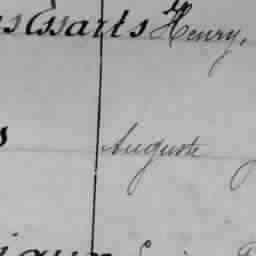 sEssarts Henry,
s Auguste